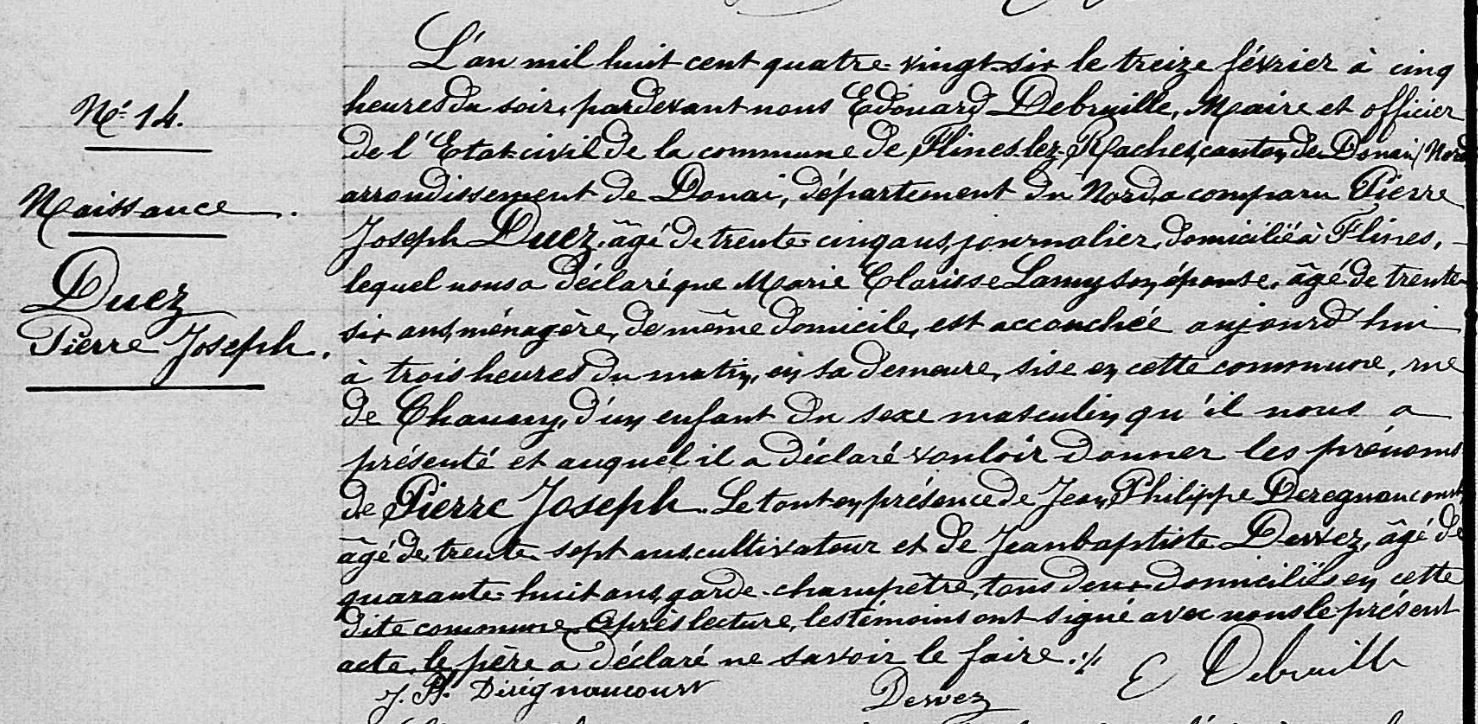 N° 14.
Naissance.
Duez
Pierre Joseph.
L'an mil huit cent quatre-vingt-six le treize février à cinq
heures du soir, pardevant nous Edouard Debruille, Maire et officier
de l'Etat-civil de la commune de Flines-lez-Raches, canton de Douai (Nord
arrondissement de Douai, département du Nord, a comparu Pierre
Joseph Duez, âgé de trente-cinq ans, journalier, domicilié à Flines,
lequel nous a déclaré que Marie Clarisse Lamy son épouse, âgé de trente-
six ans, ménagère, de même domicile, est accouchée aujourd'hui
à trois heures du matin, en sa demeure, sise en cette commune, rue
de d'un enfant du sexe masculin qu'il nous a
présenté et auquel il a déclaré vouloir donner les prénoms
de Pierre Joseph. Le tout en présence de Jean Philippe Deregnaucourt
âgé de trente-sept ans, cultivateur et de Jean baptiste Dervez, âgé de
quarante-huit ans, garde-champêtre, tous deux domiciliés en cette
dite commune. Après lecture, les témoins ont signé avec nous le présent
acte, le père a déclaré ne savoir le faire ./.
J. Ph. Derégnaucourt Dervez E Debruille